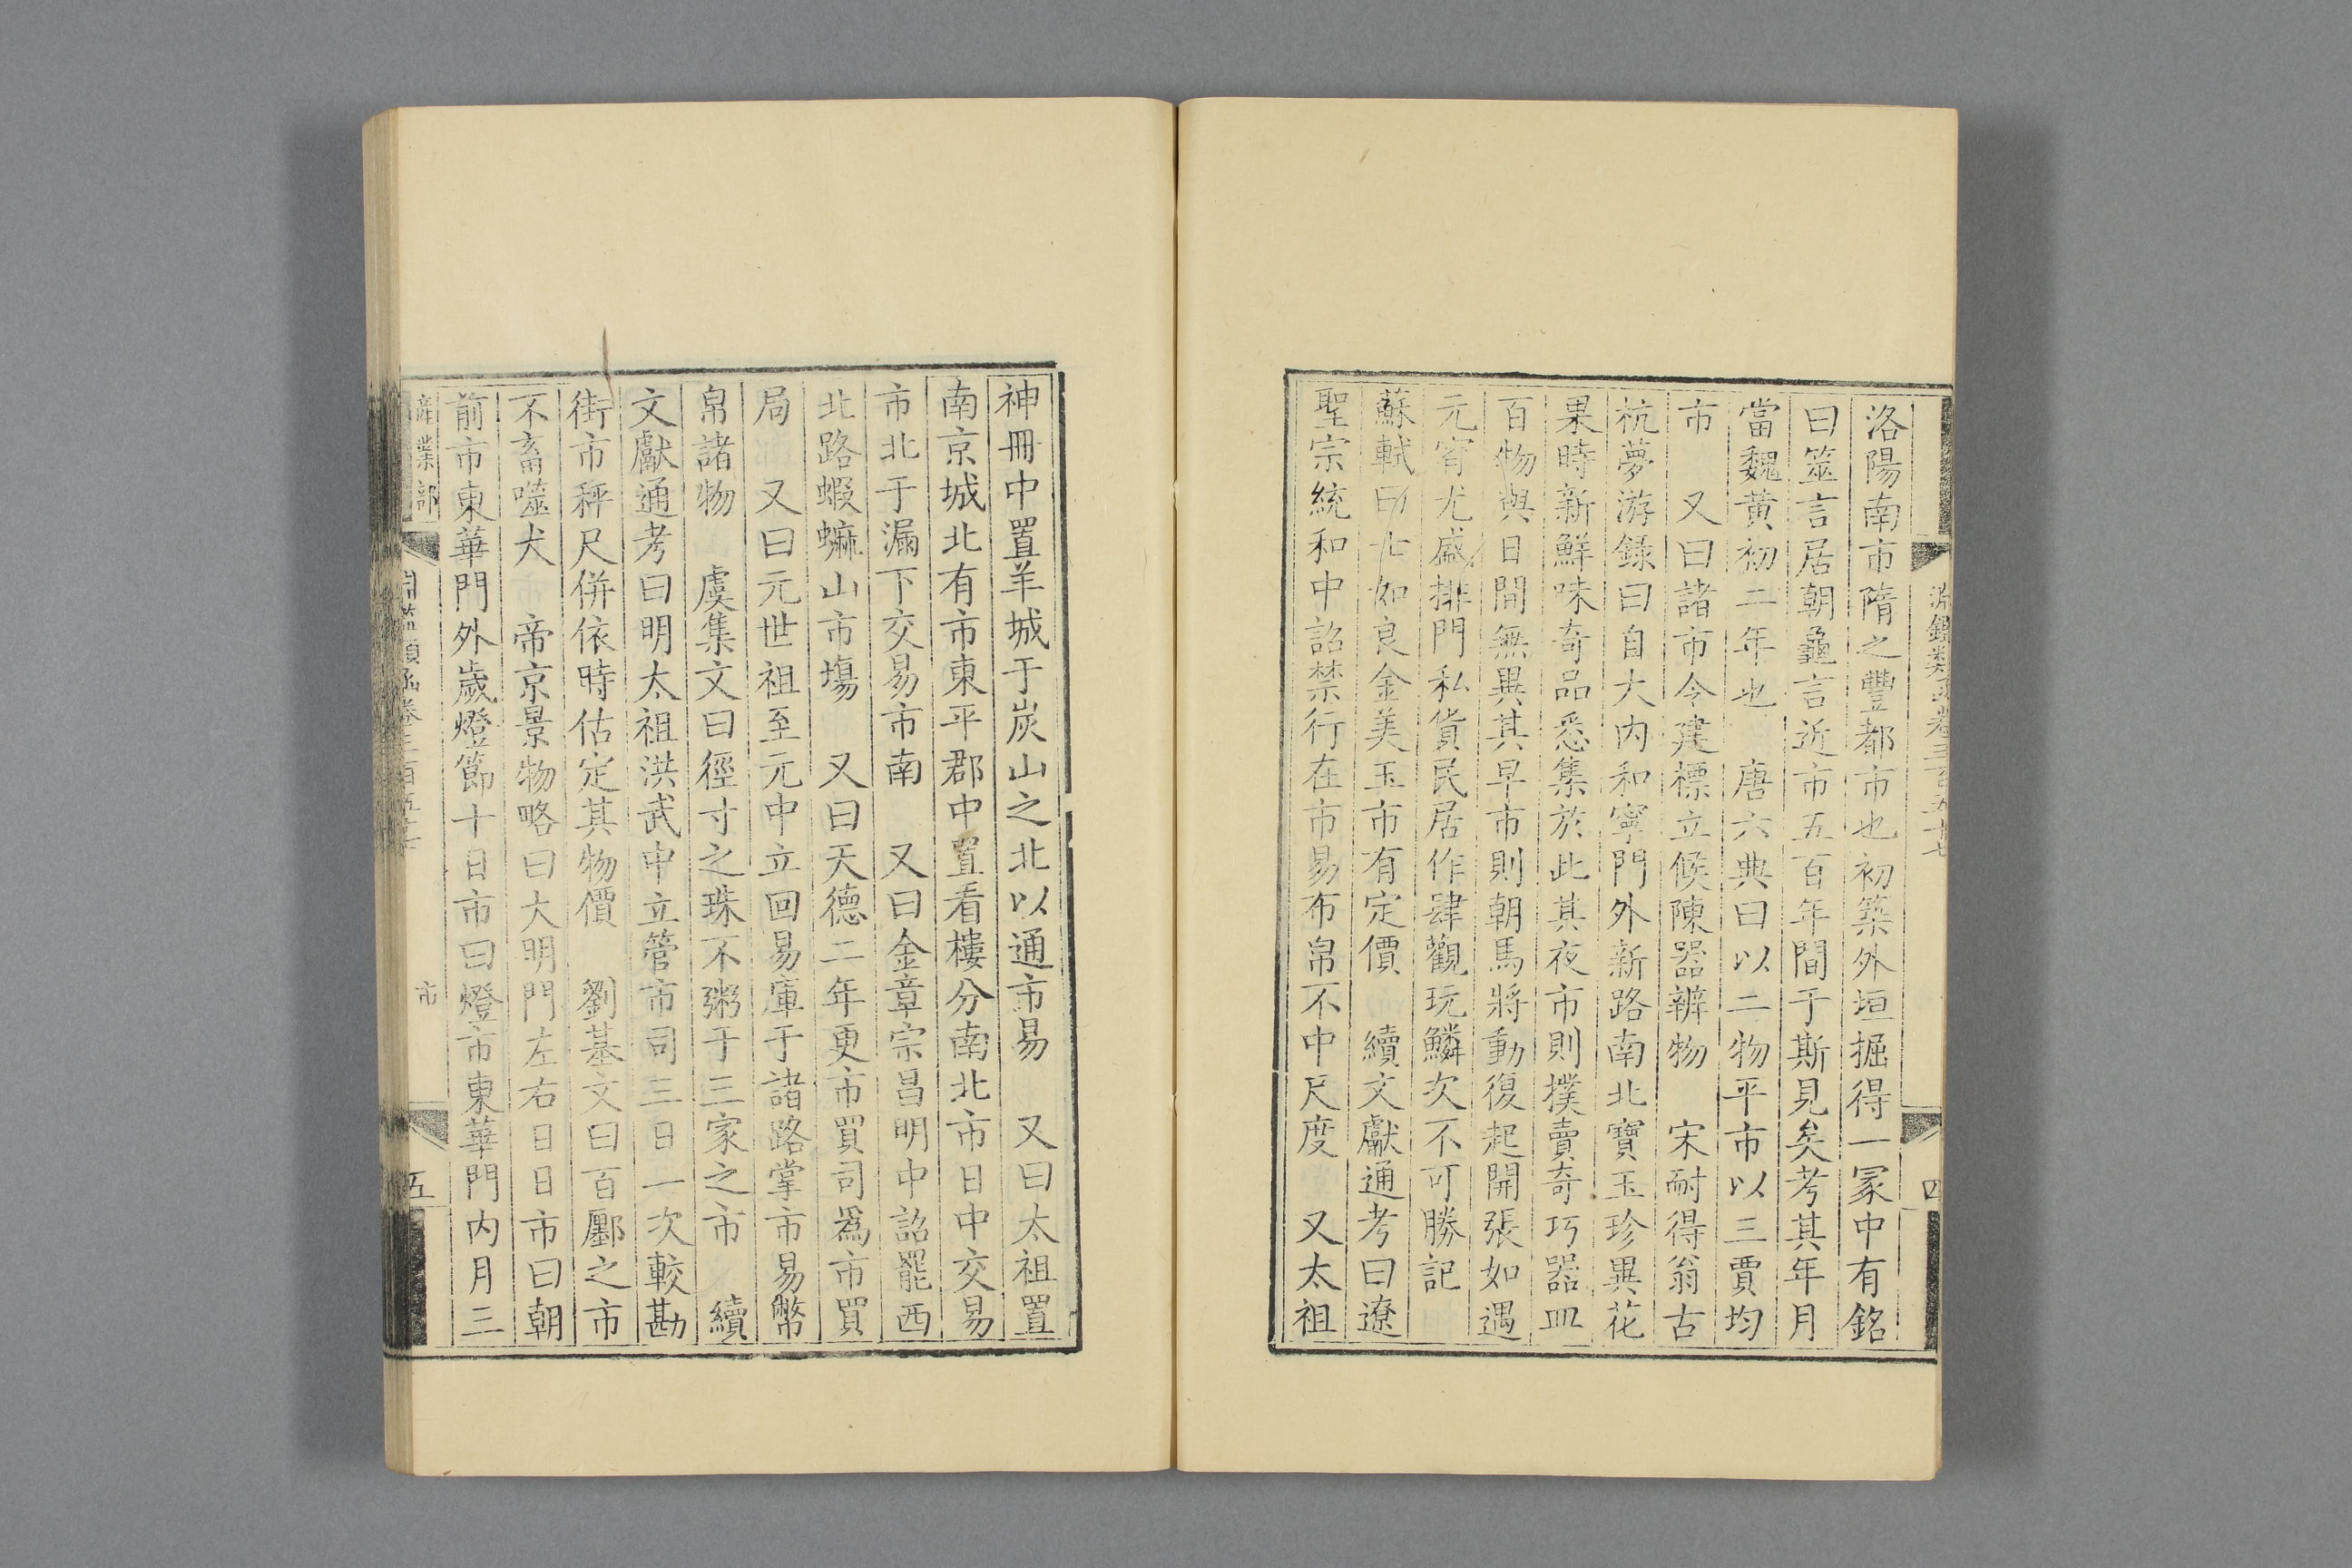 洛陽南市隋之豐都市也初築外垣掘得一冢中有銘
曰筮言居朝龜言近市五百年間于斯見矣考其年月
當魏黃初二年也　唐六典曰以二物平市以三賈均
市　又曰諸市令建標立候陳器辨物　宋耐得翁古
杭夢游錄曰自大內和寧門外新路南北寶玉珍異花
果時新鮮味奇品悉集於此其夜市則撲賣奇巧器皿
百物與日間無異其早市則朝馬將動復起開張如遇
元宵尤盛排門私貨民居作肆觀玩鱗次不可勝記
蘇軾曰如良金美玉市有定價　續文獻通考曰遼
聖宗統和中詔禁行在市易布帛不中尺度　又太祖
淵鑑類函卷三百五十七
四
神冊中置羊城于炭山之北以通市易　又曰太祖置
南京城北有市東平郡中置看樓分南北市日中交易
市北于漏下交易市南　又曰金章宗昌明中詔罷西
北路蝦䗫山市場　又曰天德二年更市買司爲市買
局　又曰元世祖至元中立回易庫于諸路掌市易幣
帛諸物　虞集文曰徑寸之珠不粥于三家之市　續
文獻通考曰明太祖洪武中立管市司三日一次較勘
街市秤尺併依時估定其物價　劉基文曰百㕓之市
不畜噬犬　帝京景物略曰大明門左右日日市曰朝
前市東華門外歲燈節十日市曰燈市東華門內月三
產業部
市
五